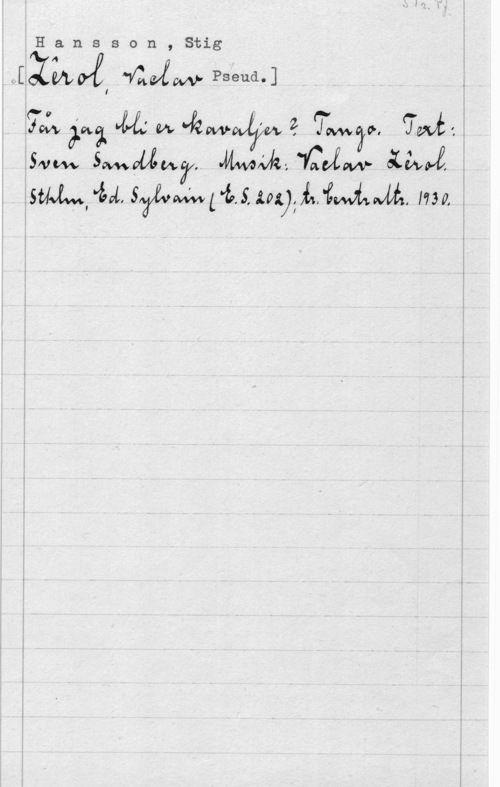 Hansson, Stig
[Zêrol, Vaclav Pseud.]
Får jag bli er kavaljer? Tango. Text:
Sven Sandberg. Musik: Vaclav Zêrol.
Sthlm, Ed. Sylvain (E.S. 202); tr. Centraltr. 1930.